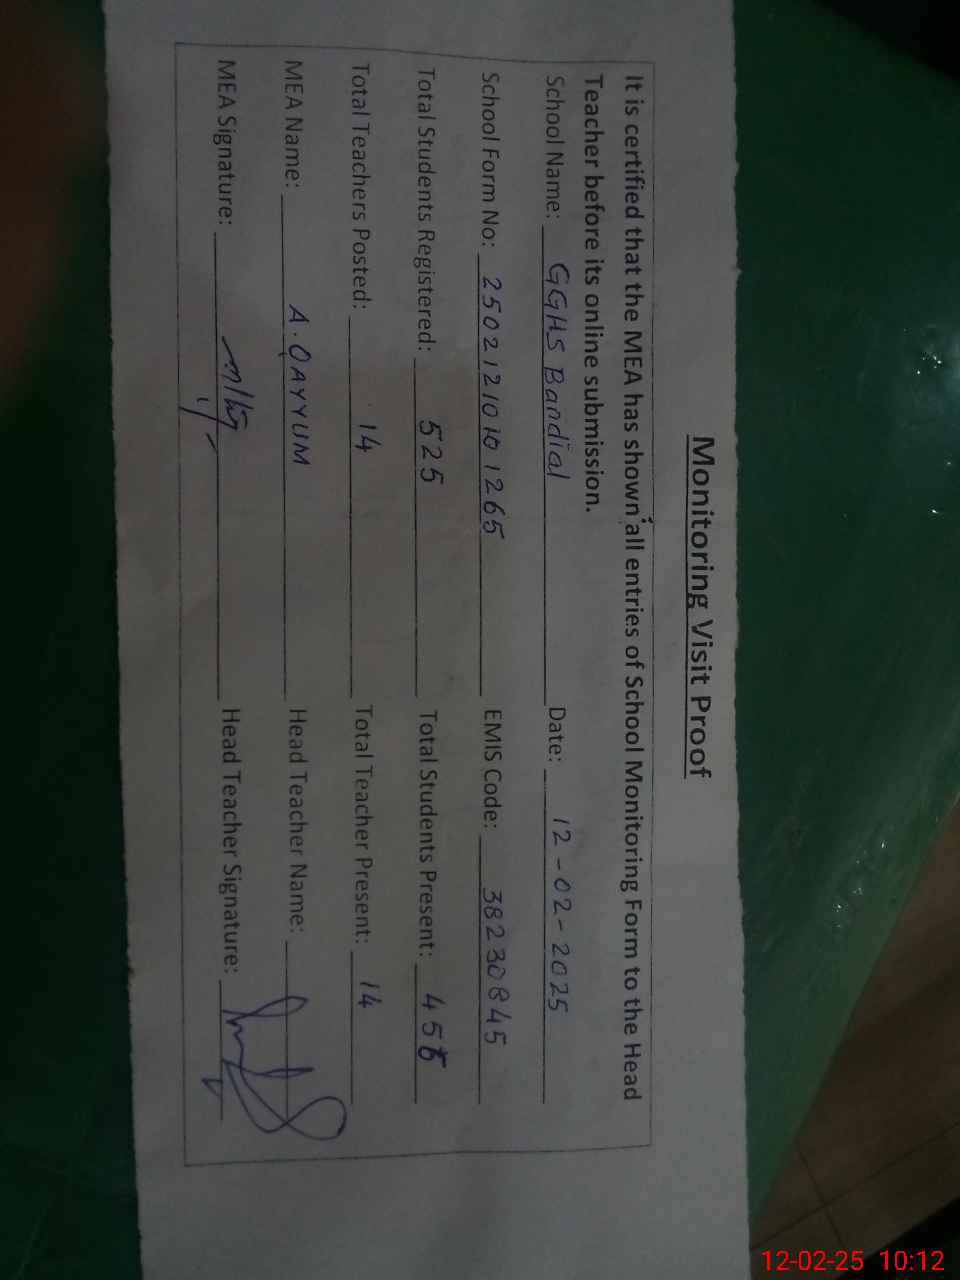 Monitoring Visit Proof
It is certified that the MEA has shown all entries of School Monitoring Form to the Head
Teacher before its online submission.
School Name: GGHS Bandial Date: 12-02-2025
School Form No: EMIS Code: 38230845
Total Students Registered: 525 Total Students Present:
Total Teachers Posted: 14 Total Teacher Present: 14
MEA Name: A.QAYYUM Head Teacher Name:
MEA Signature: Head Teacher Signature:
12-02-25 10:12